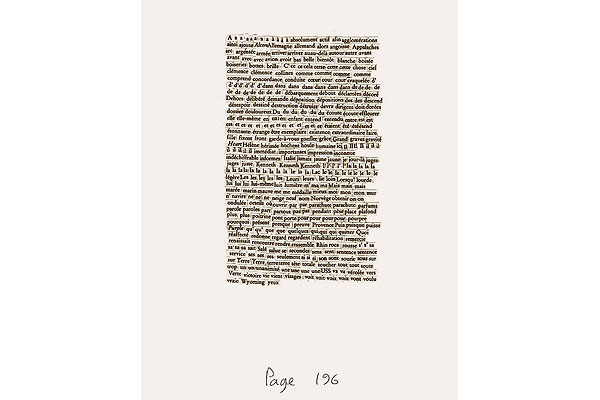 A a a a a à à à à absolument actif afin agglomérations
ainsi ajoute Alcon Allemagne allemand alors angoisse Appalaches
arc argentée armée arriver arriver aussi delà autour autre avant
avant avec avec avion avoit bas belle bientôt blanche boisée
boiseries bottes brille C' ce ce cela cette cette chose ciel
clémence clémence collines comme comme comme comme
comprend concordance conduite cœur cour cour craquelée d'
d' d' d' d' d' dans dans dans dans dans dans de de de de
de de de de de de débarquement debout déclarées décoré
Dehors délibéré demande déposition dépositions des des descend
désespoir destiné destruction détruire devra dirigent doit dorées
dossier douloureux Du du du du du écoute écouter effleurer
elle elle-même en en en enfant entend entendu entre est est
est et et et et et et et et et et étaient été étésend
étonnante étrange être exemplaire existence extraordinaire faire
fille fixent front garde-à-vous gonfler grâce Grand gravet gravité
Heart Hélène hérissée hochent houle humaine ici il il il il il
il il il il immédiat importantes impression inconnue
indéchiffrable informes Italie jamais jaune jaune je jour-là juges
juges juste Kenneth Kenneth Kenneth l' l' l' la la la la
la la la la la la la la la la Lac le le le le le le le le
légère Les les les les Leurs leurs lie loin Lorsqu' lourde
lui lui lui lui-même luit lumière m' ma ma Mais mais mais
marée marin mauve me me médaille mieux moi mon mon mur
n' navire ne ne ne neige neuf nom Norvège obtenir on on
ondulée oreille où ouvrir par par parachute parachute parfums
parole paroles part partout pas pas pendant pèse place plafond
plus plus poitrine pont porte pour pour pour pourpre
pourquoi présent presque preuve Provence Puis puisque puisse
Purple qu' qu' que que quelques qui qui qui quitter Quoi
réaffecté redonne regard regardent réhabilitation remercie
renaissait rencontre rendre ressemble Rhin rocs rousse s' s' sa
sa' sa sa sait Salé salue se secondes sens sent sentence sentence
service ses ses ses seulement si si son sont sourit sous sur
sur Terre Terre terre terre tête totale toucher tout tout toute
trop un un unanimité une une une une USS va va vérolée vers
Verte victoire vie vient visages voit voit voix voix vont voulu
vraie Wyoming yeux
Page 196